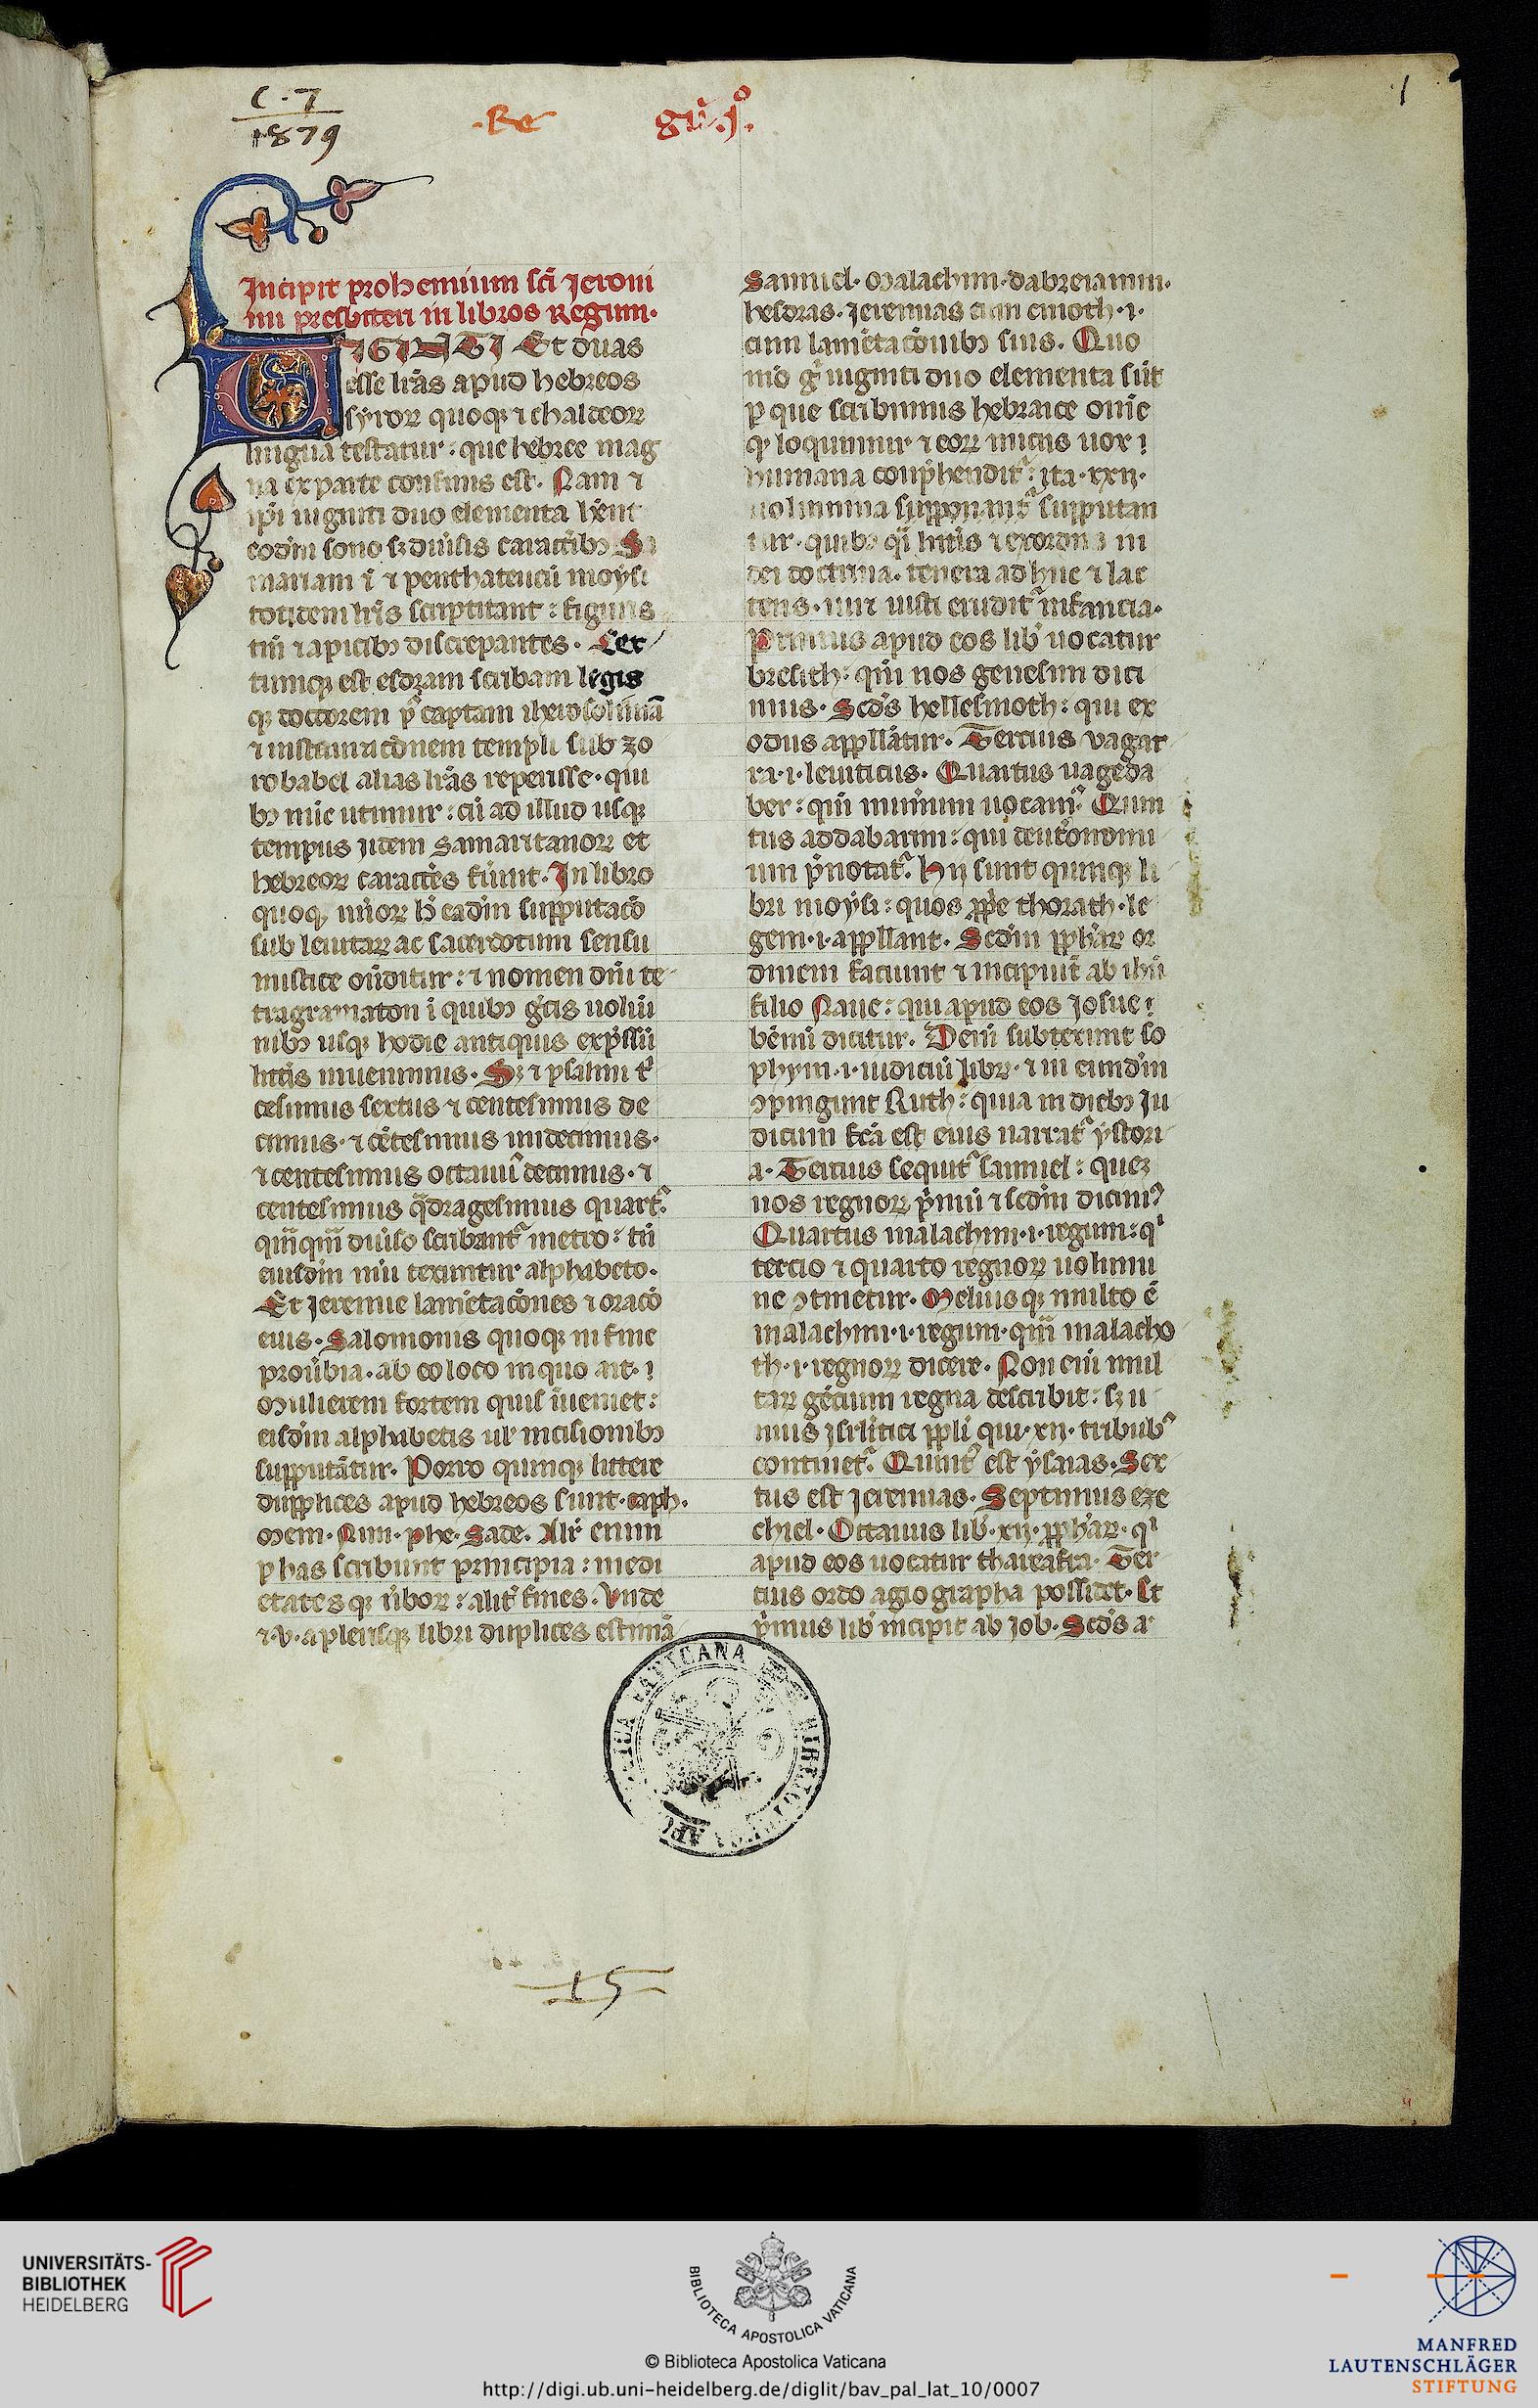 C·7
1879
·Re gũ·j°·
1
Incipit prohemium sc̃i Jeroni
mi presbiteri in libros Regum·
VIGINTI Et duas
esse lr̃as apud hebreos
syroꝝ quoqꝫ ⁊ chaldeoꝝ
lingua testatur: que hebree mag
na ex parte confinis est. Nam ⁊
ip̃i uiginti duo elementa hẽnt
eodẽm sono sꝫ diuisis caractibꝰ Sa
maritani ẽ ⁊ penthateucũ moysi
totidem lr̃is scriptitant: figuris
tm̃ ⁊ apicibꝰ discrepantes. Cer
tumqꝫ est esdram scribam legis
qꝫ doctorem p̃ captam iherosolimã
⁊ instauracõnem templi sub zo
robabel alias lr̃as reperisse· qui
bꝰ nũc utimur: cũ ad illud usqꝫ
tempus ijdem Samaritanoꝝ et
hebreoꝝ caractẽs fũunt. In libro
quoqꝫ nũoꝝ h̃ eadm̃ supputacõ
sub leuitaꝝ ac sacerdotum sensu
mistice oñditur: ⁊ nomen dñi te
tragramaton ĩ quibꝰ gᵃcis uolũi
nibꝰ usqꝫ hodie antiquis exp̃ssũ
litt̃is inuenimus. Sꝫ ⁊ psalmi tⁱ
cesimus sextus ⁊ centesimus de
cimus· ⁊ cẽtesimus undecimus·
⁊ centesimus octauuᷤ decimus· ⁊
centesimus qᵃdragesimus quartꝰ
qm̃qm̃ diũso scribantʳ metro: tm̃
eiusdm̃ nũi texuntur alphabeto.
Et Jeremie lamẽtacõnes ⁊ oracõ
eius. Salomonis quoqꝫ in fine
proũbia· ab eo loco in quo ait·:
Mulierem fortem quis ĩueniet:
eisdm̃ alphabetis uł incisionibꝰ
supputãtur. Porro quinqꝫ littere
dupplices apud hebreos sunt· caph·
Mem· Nun· phe· Sade. Alit̃ enim
ꝑ has scribunt principia: medi
etatesqꝫ ũboꝝ: alit̃ fines. Vnde
⁊·v· a plerisqꝫ libri duplices estimã
Samuel· Malachim· dabreiamin·
hesdras· Jeremias cum cinoth·i·
cum lamẽtacõnibꝰ suis. Quo
mõ gⁱ uiginti duo elementa sũt
ꝑ que scribimus hebraice om̃e
qꝫ loquimur ⁊ eoꝝ iniciis uox
humana conp̃henditʳ: ita·xxij·
uolumina supponãntʳ supputan
tur· quibꝰ qᵃi litt̃is ⁊ exordiis in
dei doctrina· tenera adhuc ⁊ lac
tens· uiri iusti eruditʳ infancia·
Primus apud eos lib̃ uocatur
bresith: quẽ nos genesim dici
mus. Scd̃s hellesmoth: qui ex
odus appllãtur. Tercius vagec
ra·i·leuiticus. Quartus uageda
ber: quẽ numerum uocamꝰ Quin
tus addabarim: qui deut̃onomi
um p̃notatʳ. Hij sunt quinqꝫ li
bri moysi: quos ꝓpe thorath·le
gem·i·appllant. Scdm̃ ꝓphaꝝ or
dinem faciunt ⁊ incipiũt ab ihũ
filio Naue: qui apud eos Josue
bẽnũ dicitur. Deiñ subtexunt so
phym·i·iudicũ librꝫ· ⁊ in eundm̃
ꝯpingunt Ruth: quia in diebꝰ Ju
dicum fc̃a est eius narratʳ ystori
a. Tercius sequitʳ samuel: quez
nos regnoꝝ p̃mũ ⁊ scdm̃ dicimꝰ
Quartus malachim·i·regum: qⁱ
tercio ⁊ quarto regnoꝝ uolumi
ne ꝯtinetur. Meliusqꝫ multo ẽ
malachim·i·regum· qm̃ malacho
th·i·regnoꝝ dicere. Non eñi mul
taꝝ gẽcium regna describit: sꝫ u
nius jsrl̃itici ꝓpli qui·xij·tribubꝰ
continetʳ. Quintꝰ est ysaias. Sex
tus est Jeremias. Septimus eze
chiel. Octauus lib̃·xij·ꝓphaꝝ· qⁱ
apud eos uocatur thareafra. Ter
cius ordo agiographa possidet. Et
p̃mus lib̃ incipit ab Job. Scd̃s a
15
UNIVERSITÄTS-
BIBLIOTHEK
HEIDELBERG
BIBLIOTECA APOSTOLICA VATICANA
© Biblioteca Apostolica Vaticana
http://digi.ub.uni-heidelberg.de/diglit/bav_pal_lat_10/0007
MANFRED
LAUTENSCHLÄGER
STIFTUNG